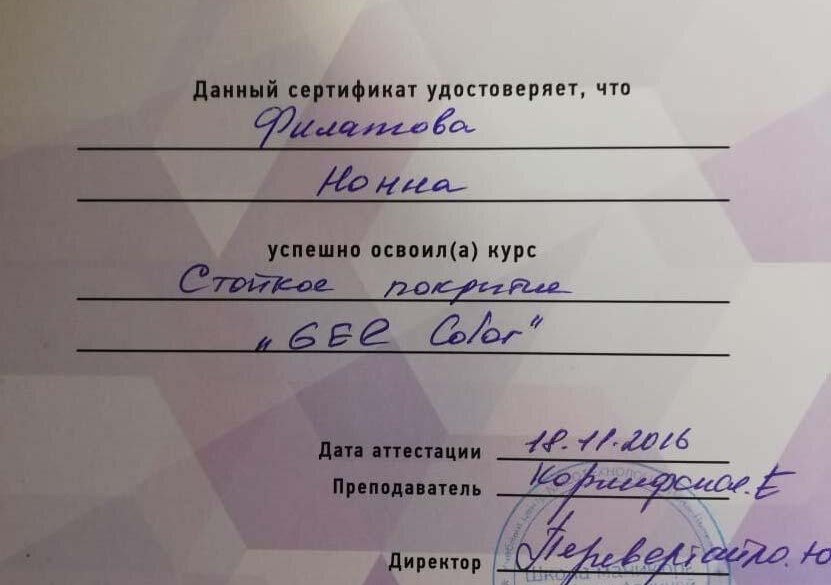 Данный сертификат удостоверяет, что
Филатова
Нонна
успешно освоил(а) курс
Стойкое покрытие
„GEL Color"
Дата аттестации 18.11.2016
Преподаватель
Директор
Школа маникюра